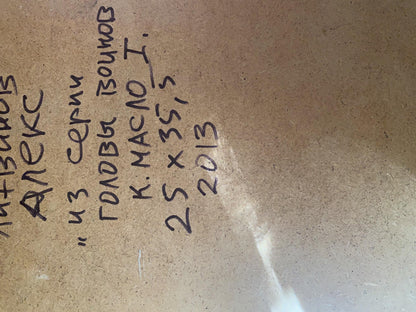 Литвинов
Алекс
"из серии
головы воинов
I.
К. МАСЛО
25 х 35,5
2013